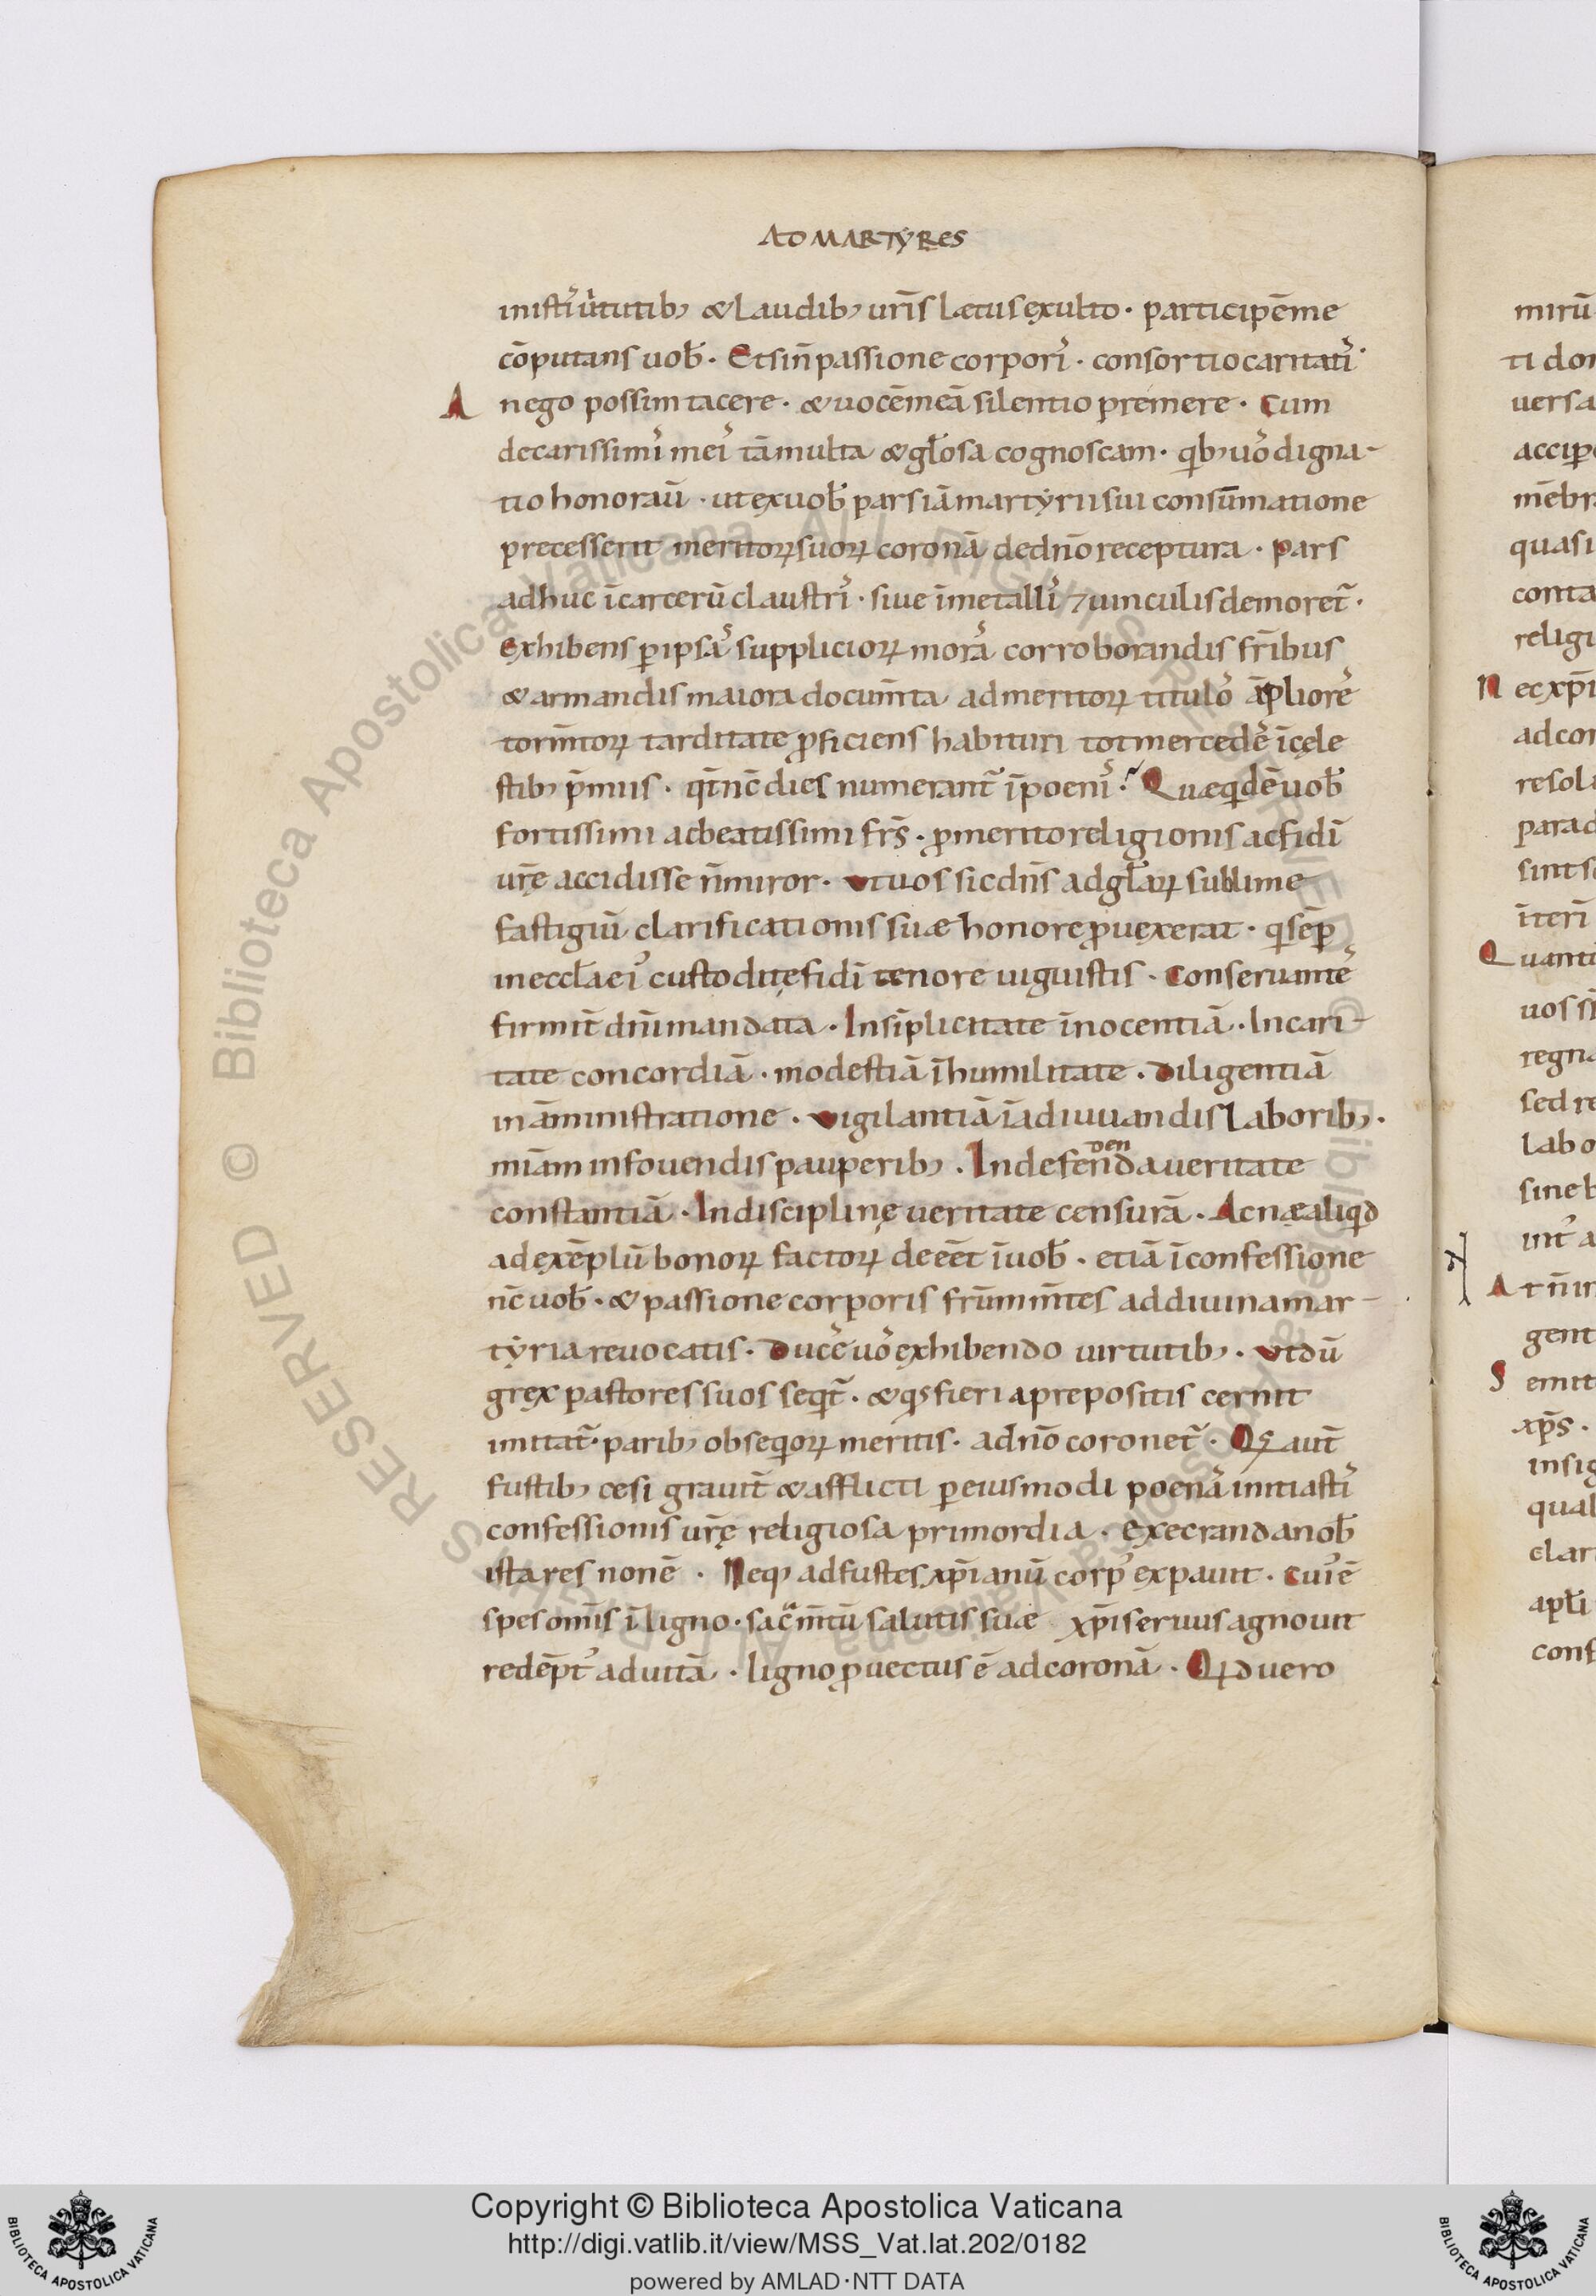 AD MARTYRES
in istis ûtutib; & laudib; uris̄ lætus exulto · participē me
cōputans uob̄ · Et si n̄ passione corporis · consortio caritatis
A nego possim tacere · & uocē meā silentio premere · Cum
de carissimis meis tā multa & gl̄osa cognoscam · qib; uos digna-
tio honorauī · ut ex uob̄ pars iā martyrii sui consūmatione
precesserit meritoꝝ suoꝝ coronā de dn̄o receptura · pars
adhuc ī carcerū claustris · siue ī metallis ⁊ uinculis demoret̄ ·
Exhibens p̱ ipsas supplicioꝝ moras corroborandis fr̄ibus
& armandis maiora docum̄ta ad meritoꝝ titulos āpliores
torm̄toꝝ tarditate ꝓficiens habituri tot mercedes ī cęle
stib; p̄miis · qt̄ nc̄ dies numerant̄ ī poenis · Quæ qidē uob̄
fortissimi ac beatissimi fr̄s · ꝓ merito religionis ac fidī
ur̄ę accidisse n̄ miror · Vt uos sic dn̄s ad gl̄arꝝ sublime
fastigiū clarificationis suæ honore ꝓuexerat · qi sēp̱
in eccl̄a ei' custoditę fidī tenore uiguistis · Conseruantes
firmit̄ dn̄i mandata · In sīplicitate īnocentiā · In cari-
tate concordiā · modestiā ī humilitate · Diligentiā
in āministratione · Vigilantiā ī adiuuandis laborib; ·
mīam in fouendis pauperib; · In defenda ueritate
den
constantiā · In disciplinę ueritate censurā · Ac næ aliqid
ad exēplū bonoꝝ factoꝝ deeēt ī uob̄ · etiā ī confessione
nc̄ uob̄ · & passione corporis frūm m̄tes ad diuina mar-
tyria reuocatis · Duces uos exhibendo uirtutib; · Vt dū
grex pastores suos seqit̄ · & qꝫ fieri a prepositis cernit
imitat̄ · parib; obseqioꝝ meritis · a dn̄o coronet̄ · Qꝫ aut̄
fustib; cesi grauit̄ & afflicti per eiusmodi poenas initiastis
confessionis ur̄ę religiosa primordia · execranda nob̄
ista res non ē · Neq; ad fustes xp̄ianū corp' expauit · Cui' ē
spes omīs ī ligno · sacm̄tū salutis suæ xp̄i seruus agnouit
redēpt' ad uitā · ligno ꝓuectus ē ad coronā · Qid uero
mirū
ti don
uersa
accip
mēbr
quasi
conta
religi
N ec xp̄i
ad cor
resol
parad
sint s
īteri
Q uanti
uos si
regn
sed re
lab o
sine b
int' a
A t n̄ in
gent
S emit
xp̄s ·
insig
qual
clar
apl̄i
conf
© Biblioteca Apostolica Vaticana ALL RIGHTS RESERVED
Copyright © Biblioteca Apostolica Vaticana
http://digi.vatlib.it/view/MSS_Vat.lat.202/0182
powered by AMLAD·NTT DATA
BIBLIOTECA APOSTOLICA VATICANA
BIBLIOTECA APOSTOLICA VATICANA